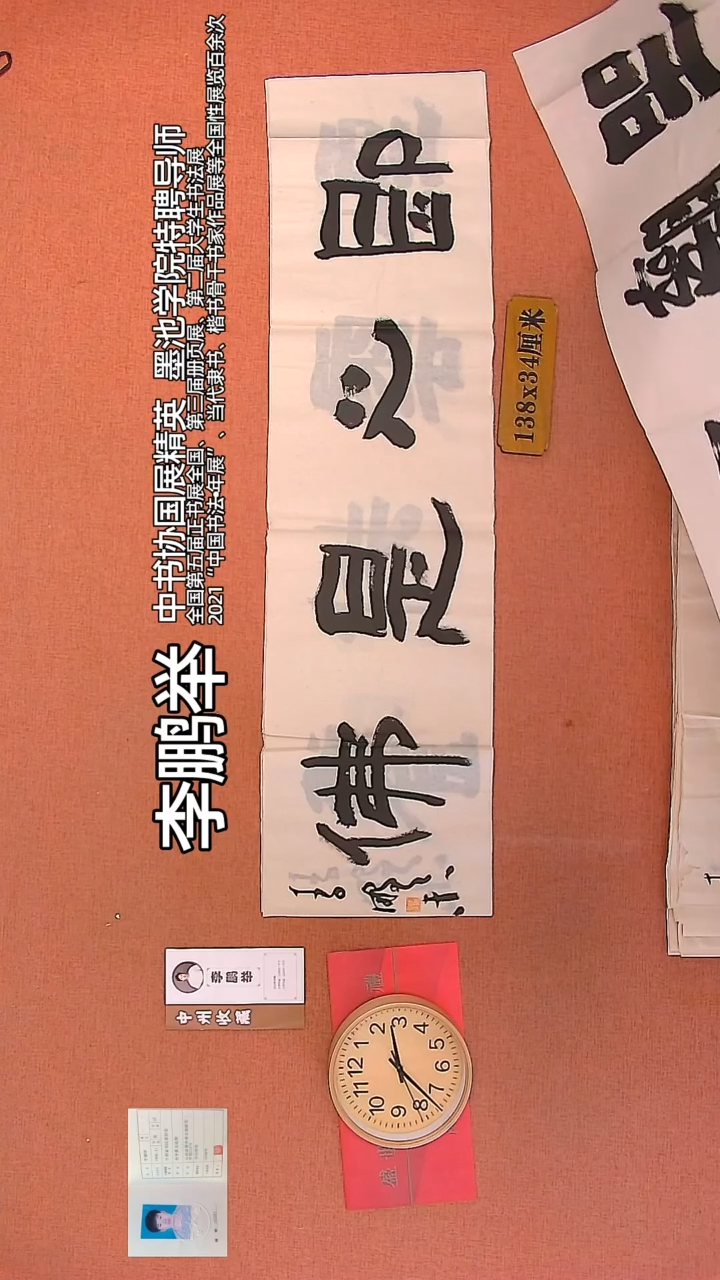 李鹏举
中书协国展精英 墨池学院特聘导师
全国第五届正书展全国、第三届册页展、第二届大学生书法展
2021“中国书法·年展”、当代隶书、楷书骨干书家作品展等全国性展览百余次
即心是佛
138x34厘米
李鹏举
中州收藏
12
1
2
3
4
5
6
7
8
9
10
11